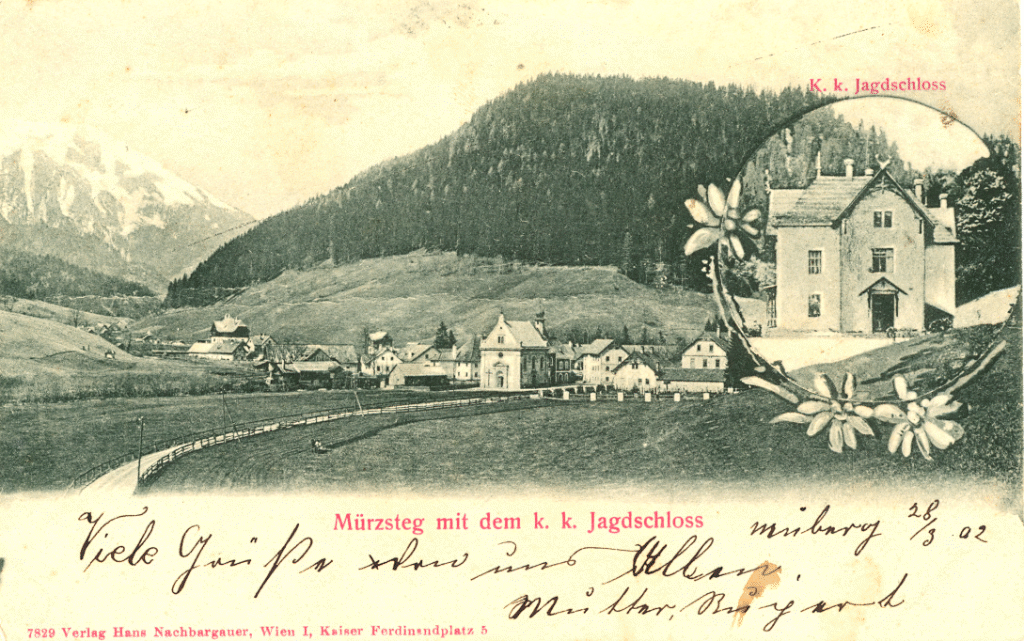 K. k. Jagdschloss
Mürzsteg mit dem k. k. Jagdschloss
müberg 28/3 02
Viele Grüße von uns Allen
Mutter, Rupert
7829 Verlag Hans Nachbargauer, Wien I, Kaiser Ferdinandplatz 5